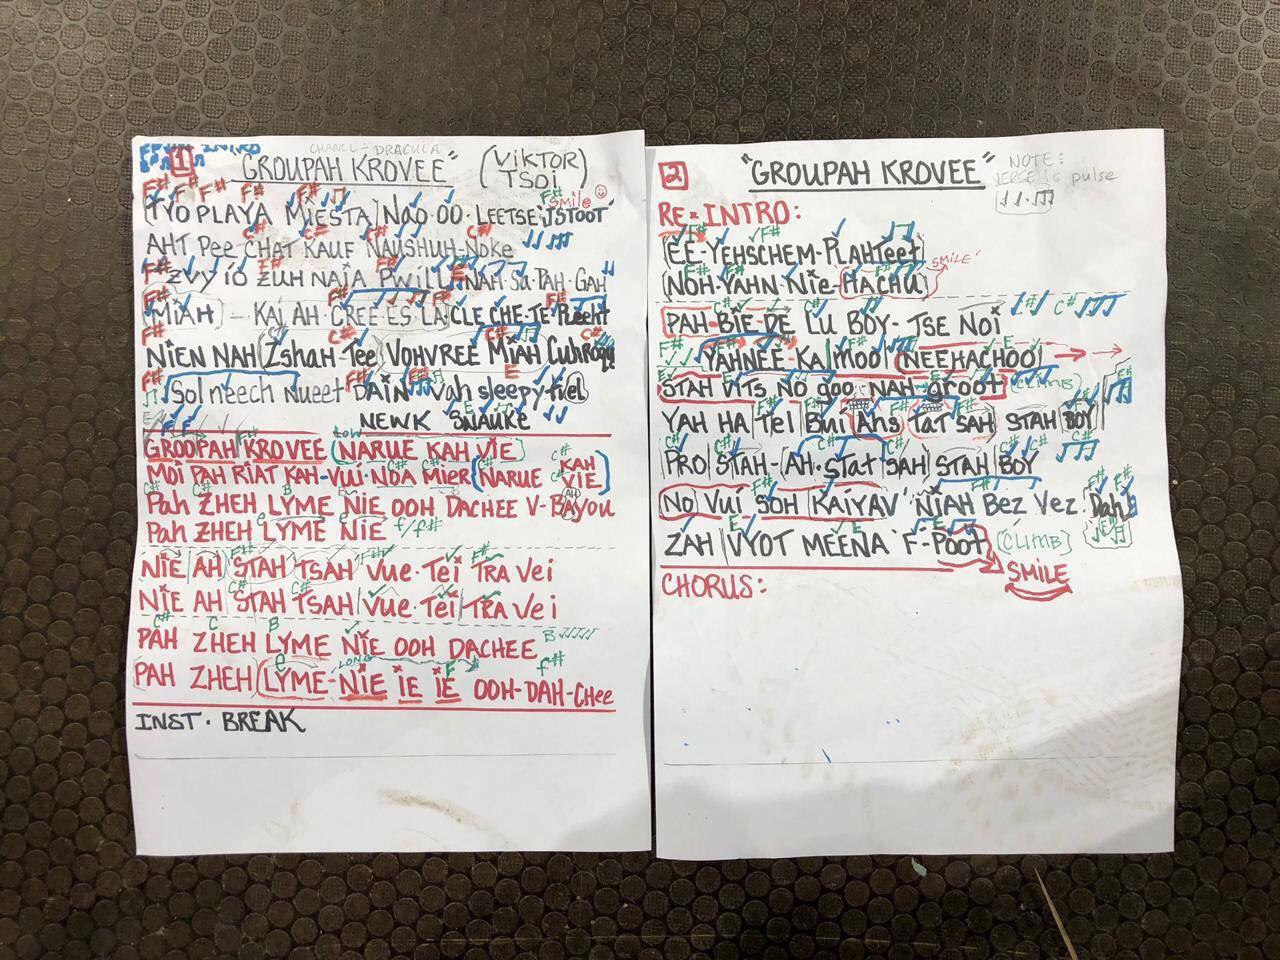 1
CHANEL - DRACULA
"GROUPAH KROVEE" (VIKTOR TSOI)
F# F# F# F# F# F# Smile
TYO PLAYA MIESTA NAO·OO·LEETSE 'ISTOOT'
AHT Pee CHAT KAUF NAUSHUH-NoKe
ZVY IO ZUH NAIA PWILL NAH-Su-PAH-GAH
MIAH - KAI AH CREE ES LA CLE CHE-TE PLecht
NIEN NAH ZshaH Tee VOHVREE MIAH
Sol neech Nueet DAIN' Vah sleepy tiel
NEWK SNAUKE
GROOPAH KROVEE (NARUE KAH VIE
MOI PAH RIAT KAH-VUI-NOA MIER (NARUE KAH VIE)
Pah ZHEH LYME NIE OOH DACHEE V-BAyou
Pah ZHEH LYME NIE f/f#
NIE AH STAH TSAH VUE-TEI TRA Vei
NIE AH STAH TSAH VUE-TEI TRA Vei
PAH ZHEH LYME NIE OOH DACHEE
PAH ZHEH (LYME-NIE IE IE OOH-DAH-CHee
LONG
INST. BREAK
2
"GROUPAH KROVEE"
NOTE:
VERSE is pulse
RE-INTRO:
EE-YEHSCHEM-PLAHTeeT
NOH-YAHN-Nie-HACHU SMILE
PAH-BIE-DE LU BOY-TSE NOI
YAHNEE-KA MOO (NEEHACHOO)
STAH VITS NO goo NAH-groot (CLIMB)
YAH HA Tel Bui Ans Tat SAH STAH BOY
PRO STAH-AH-Stat SAH STAH BOY
NO VUI SOH KAIYAV' NIAH Bez Vez Dah
ZAH VYOT MEENA 'F-POOT (CLIMB)
SMILE
CHORUS: